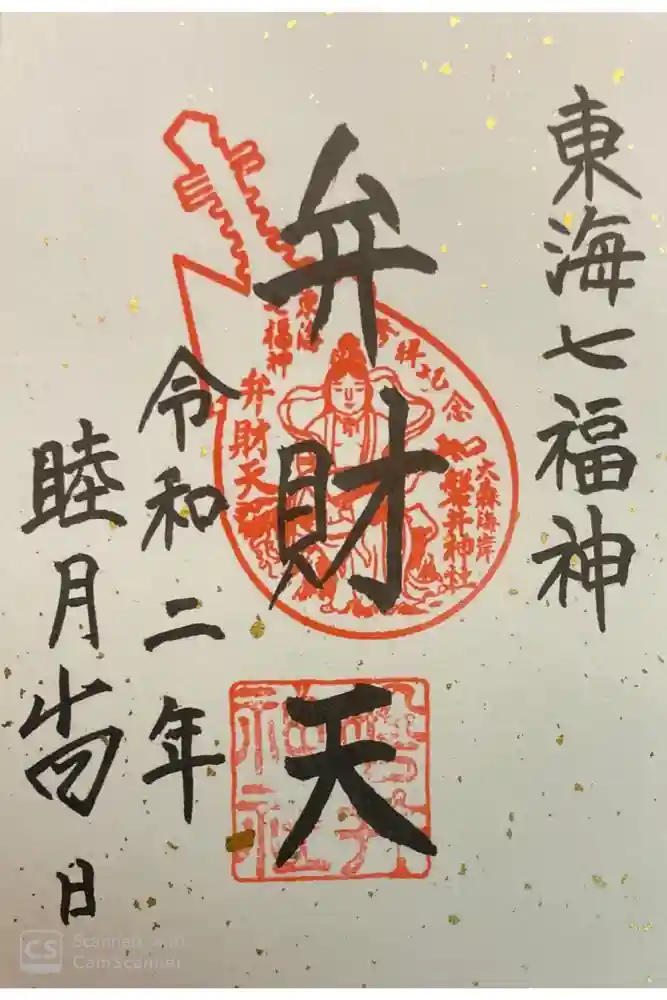 東海七福神
弁財天
令和二年
睦月吉日
東海七福神
参拝記念
弁財天
大森海岸
磐井神社
磐井神社
CS
Scanned with
CamScanner